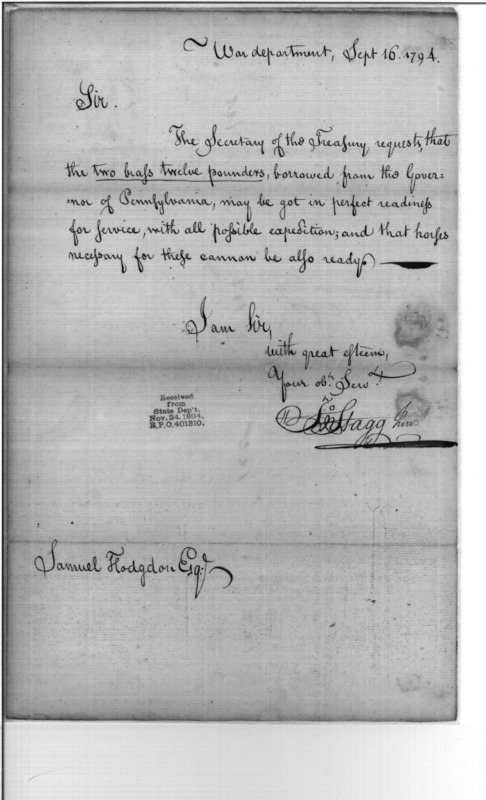 War department, Sept 16. 1794.
Sir.
The Secretary of the Treasury requests, that
the two brass twelve pounders, borrowed from the Gover=
=nor of Pennsylvania, may be got in perfect readiness
for service, with all possible expedition; and that horses
necessary for these cannon be also ready.
I am Sir,
with great esteem,
Your obt. Servt.
Jno Stagg Junr
Received
from
State Dep't.
Nov. 24. 1894.
R.P.O. 401310.
Samuel Hodgdon Esqr.